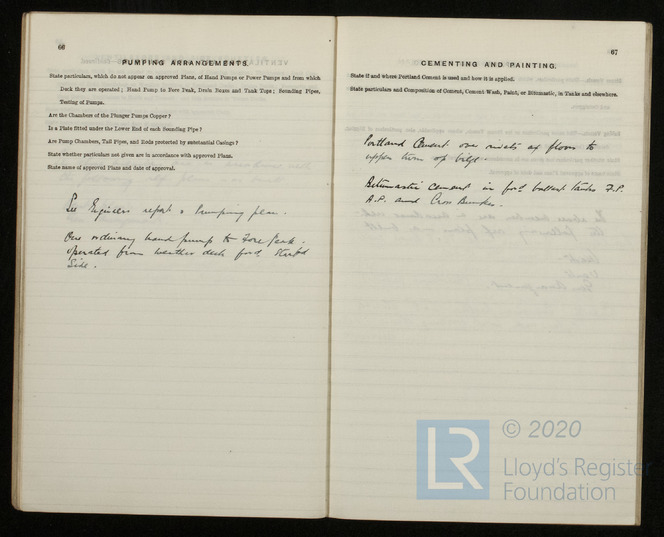 66
PUMPING ARRANGEMENTS.
State particulars, which do not appear on approved Plans, of Hand Pumps or Power Pumps and from which
Deck they are operated; Hand Pump to Fore Peak, Drain Boxes and Tank Tops; Sounding Pipes,
Testing of Pumps.
Are the Chambers of the Plunger Pumps Copper?
Is a Plate fitted under the Lower End of each Sounding Pipe?
Are Pump Chambers, Tail Pipes, and Rods protected by substantial Casings?
State whether particulars not given are in accordance with approved Plans.
State name of approved Plans and date of approval.
See Engineers report & Pumping plan.
One ordinary hand pump to Fore Peak.
operated from weather deck ford Starbd
Side.
67
CEMENTING AND PAINTING.
State if and where Portland Cement is used and how it is applied.
State particulars and Composition of Cement, Cement-Wash, Paint, or Bitumastic, in Tanks and elsewhere.
Portland Cement over rivets of floors to
upper turn of bilge.
Bitumastic cement in ford ballast tanks F.P.
A.P. and Cross Bunker.
LR
© 2020
Lloyd's Register
Foundation